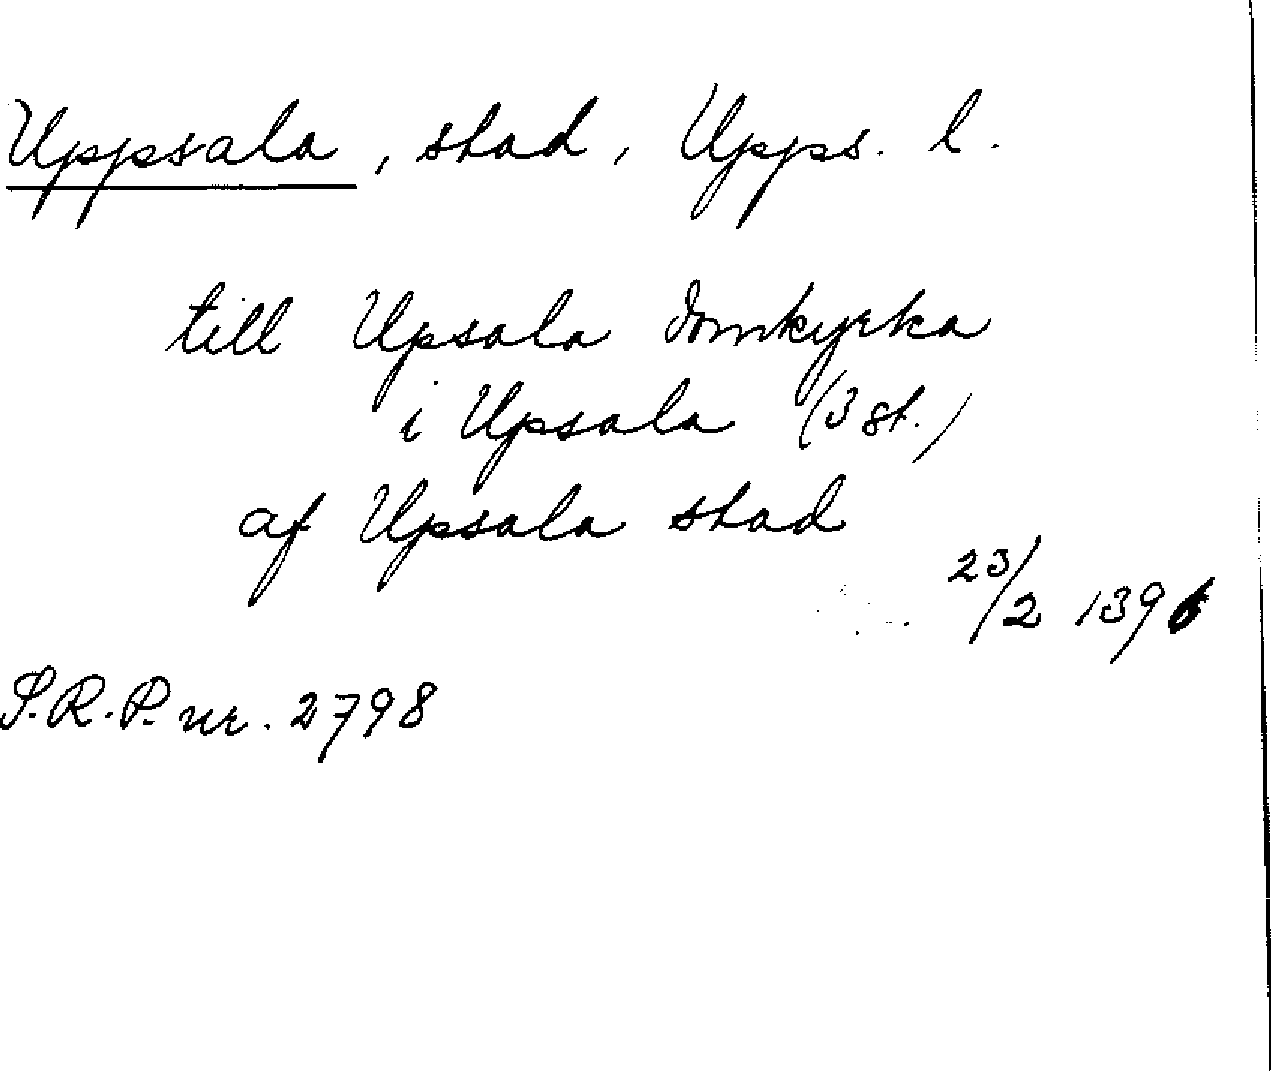 Uppsala, stad, Upps. l.
till Upsala domkyrka
i Upsala (3 st.)
af Upsala stad
23/2 1396
S.R.P. nr. 2798